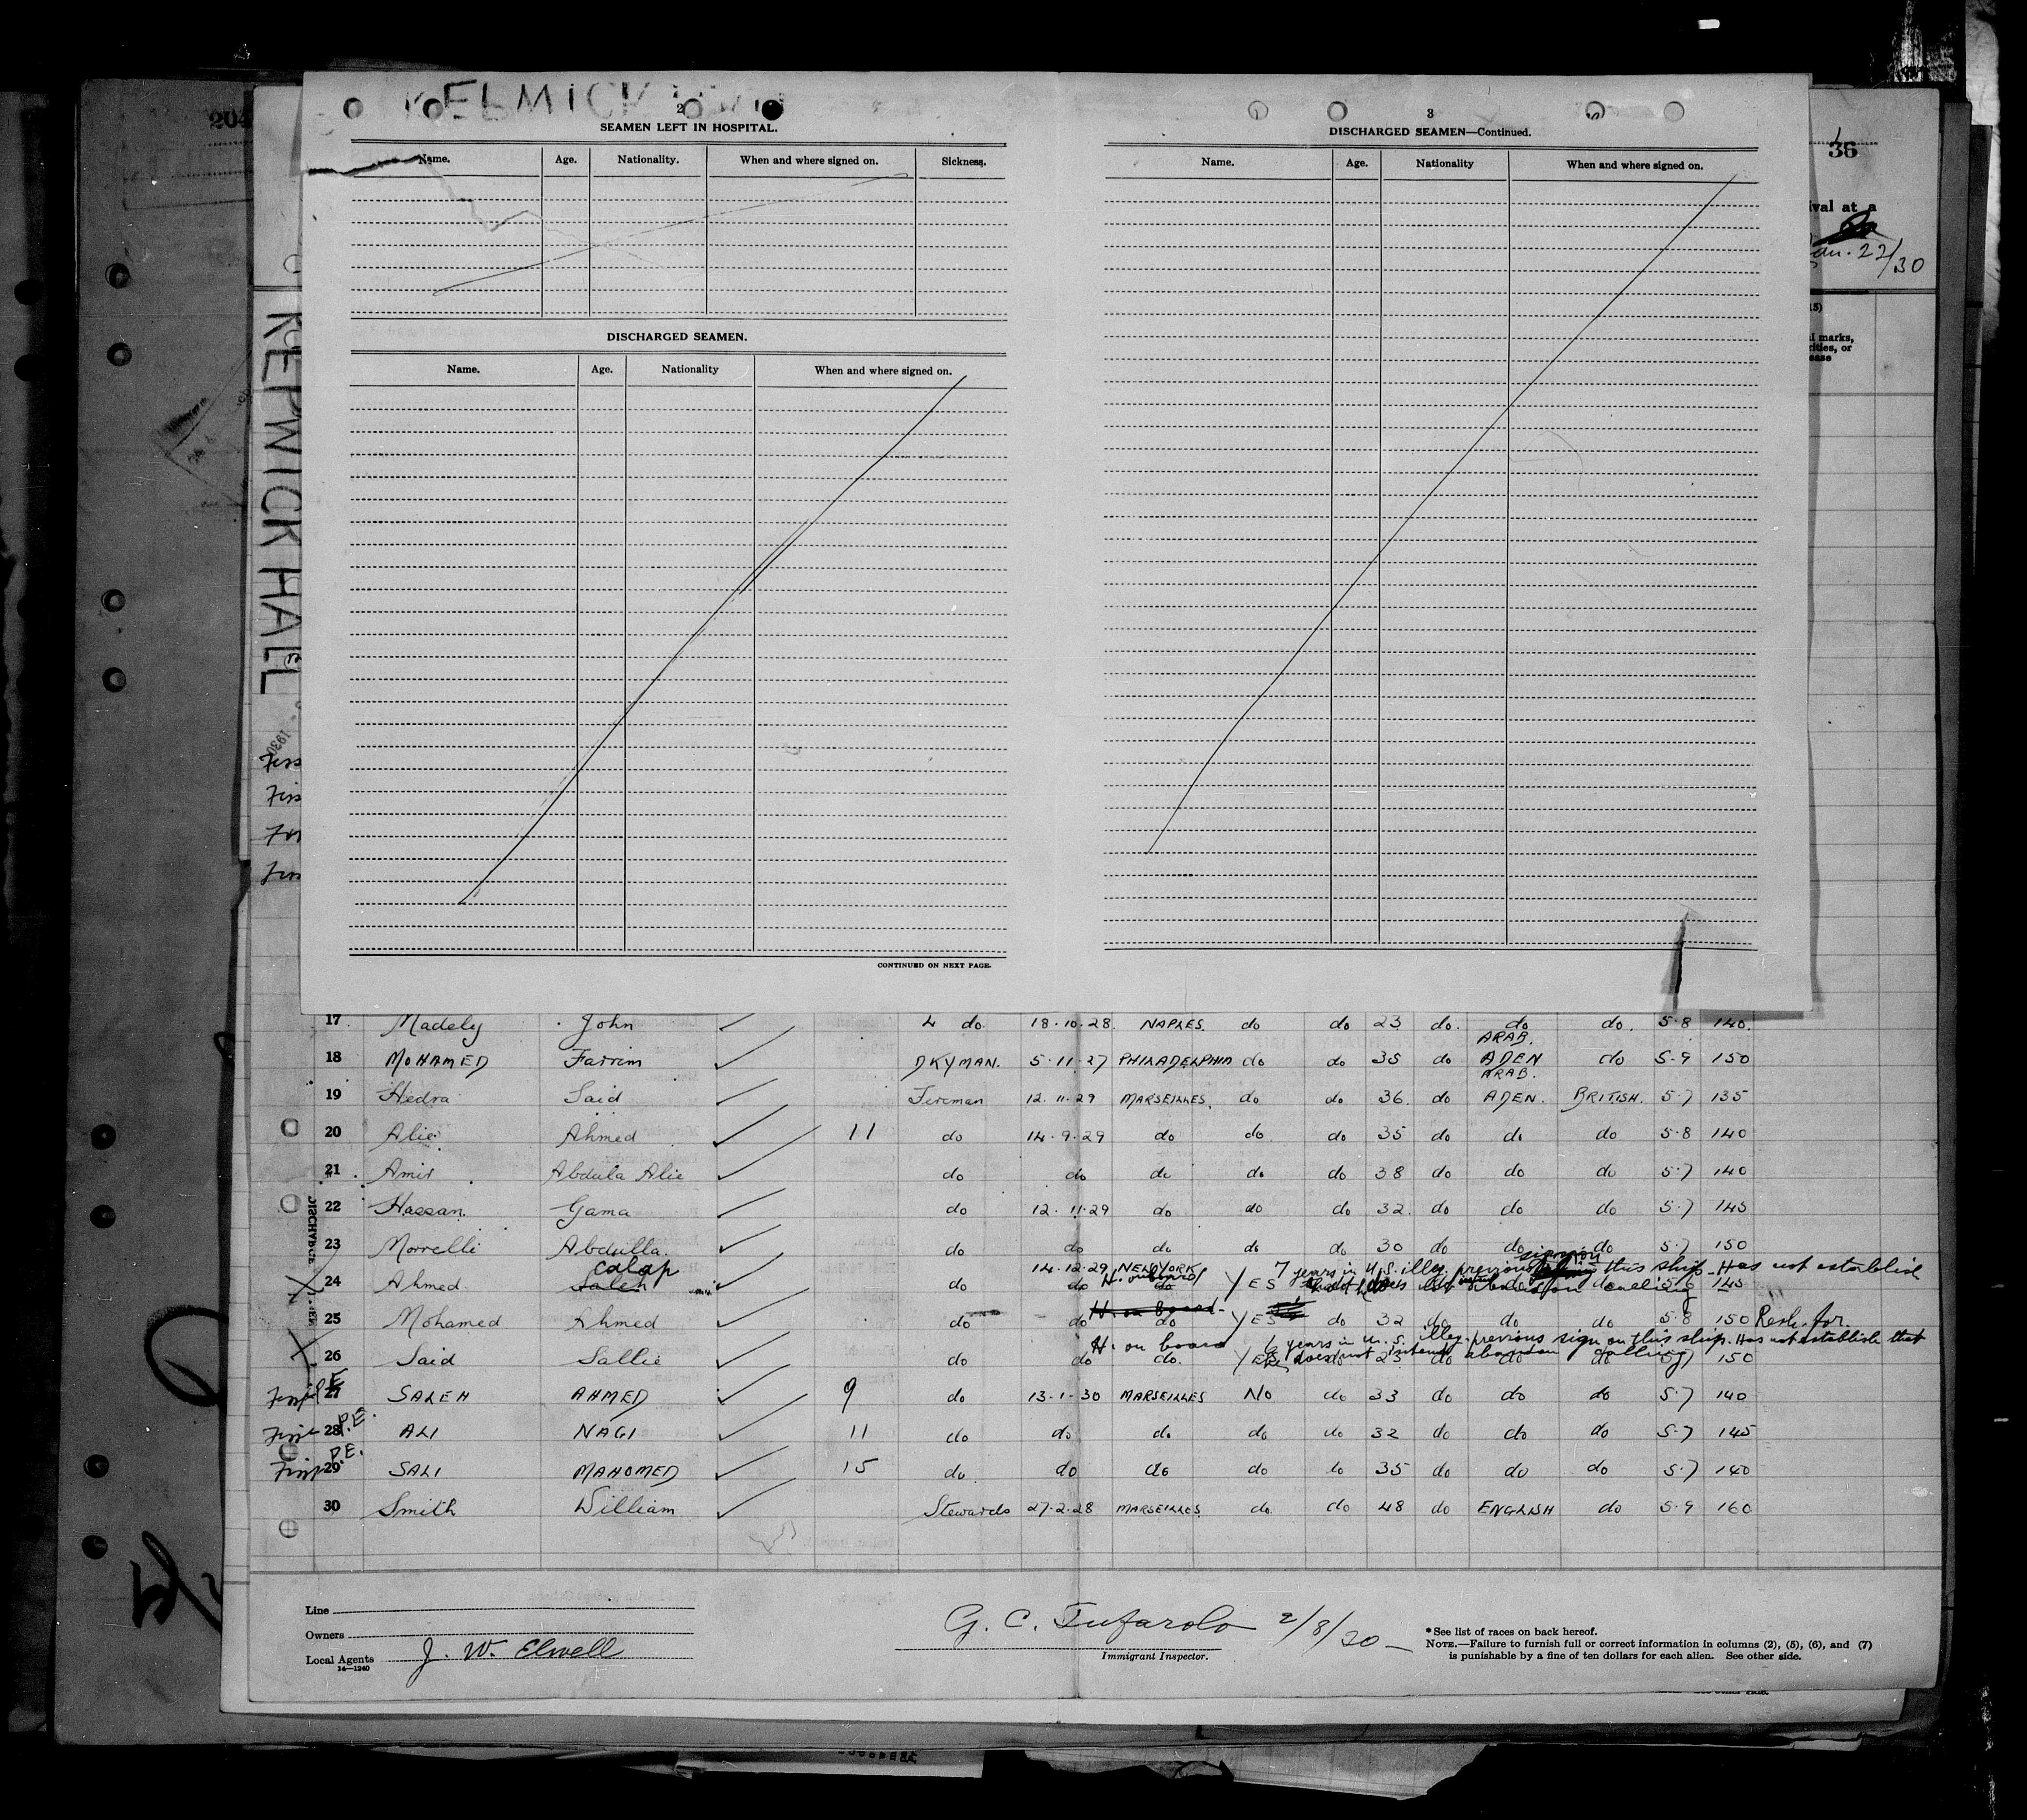 2
SEAMEN LEFT IN HOSPITAL.
Name. Age. Nationality. When and where signed on. Sickness.
DISCHARGED SEAMEN.
Name. Age. Nationality When and where signed on.
CONTINUED ON NEXT PAGE.
3
DISCHARGED SEAMEN—Continued.
Name. Age. Nationality When and where signed on.
204
36
ival at a
Jan. 22/30
l marks,
rities, or
ease
KEPWICK HALL
1930
17 Madely John 4 do. 18.10.28. NAPLES. do do 23 do. do do. 5.8 140.
ARAB.
18 MOHAMED Farrim DKYMAN. 5.11.27 PHILADELPHIA do do 35 do ADEN do 5.9 150
ARAB.
19 Hedra Said Fireman 12.11.29 MARSEILLES. do do 36. do ADEN. BRITISH. 5.7 135
20 Alie Ahmed 11 do 14.9.29 do do do 35 do do do 5.8 140
21 Amir Abdula Alie do do do do do 38 do do do 5.7 140
22 Hassan. Gama do 12.11.29 do do do 32. do do do 5.7 145
23 Morrelli Abdulla. do do do do do 30 do do do 5.7 150
calap 14.12.29 NEW YORK 7 years in U.S. illeg. previous this ship. Has not establish
24 Ahmed Saleh do do do YES do do 5.6 145
H. on board
25 Mohamed Ahmed do do do YES do 32 do do do 5.8 150
H. on board 6 years in U.S. illeg. previous sign on this ship. Has not establish that
26 Said Sallie do do do. YES does not intend abandon calling 150
27 SALEH AHMED 9 do 13-1-30 MARSEILLES NO do 33 do do do 5.7 140
P.E.
28 ALI NAGI 11 do do do do do 32 do do do 5.7 145
P.E.
29 SALI MAHOMED 15 do do do do do 35 do do do 5.7 140
30 Smith William Stewards 27.2.28 MARSEILLES. do do 48 do ENGLISH do 5.9 160
Line
Owners
Local Agents J. W. Elwell
14—1240
G. C. Tufarolo 2/8/30
Immigrant Inspector.
* See list of races on back hereof.
NOTE.—Failure to furnish full or correct information in columns (2), (5), (6), and (7)
is punishable by a fine of ten dollars for each alien. See other side.